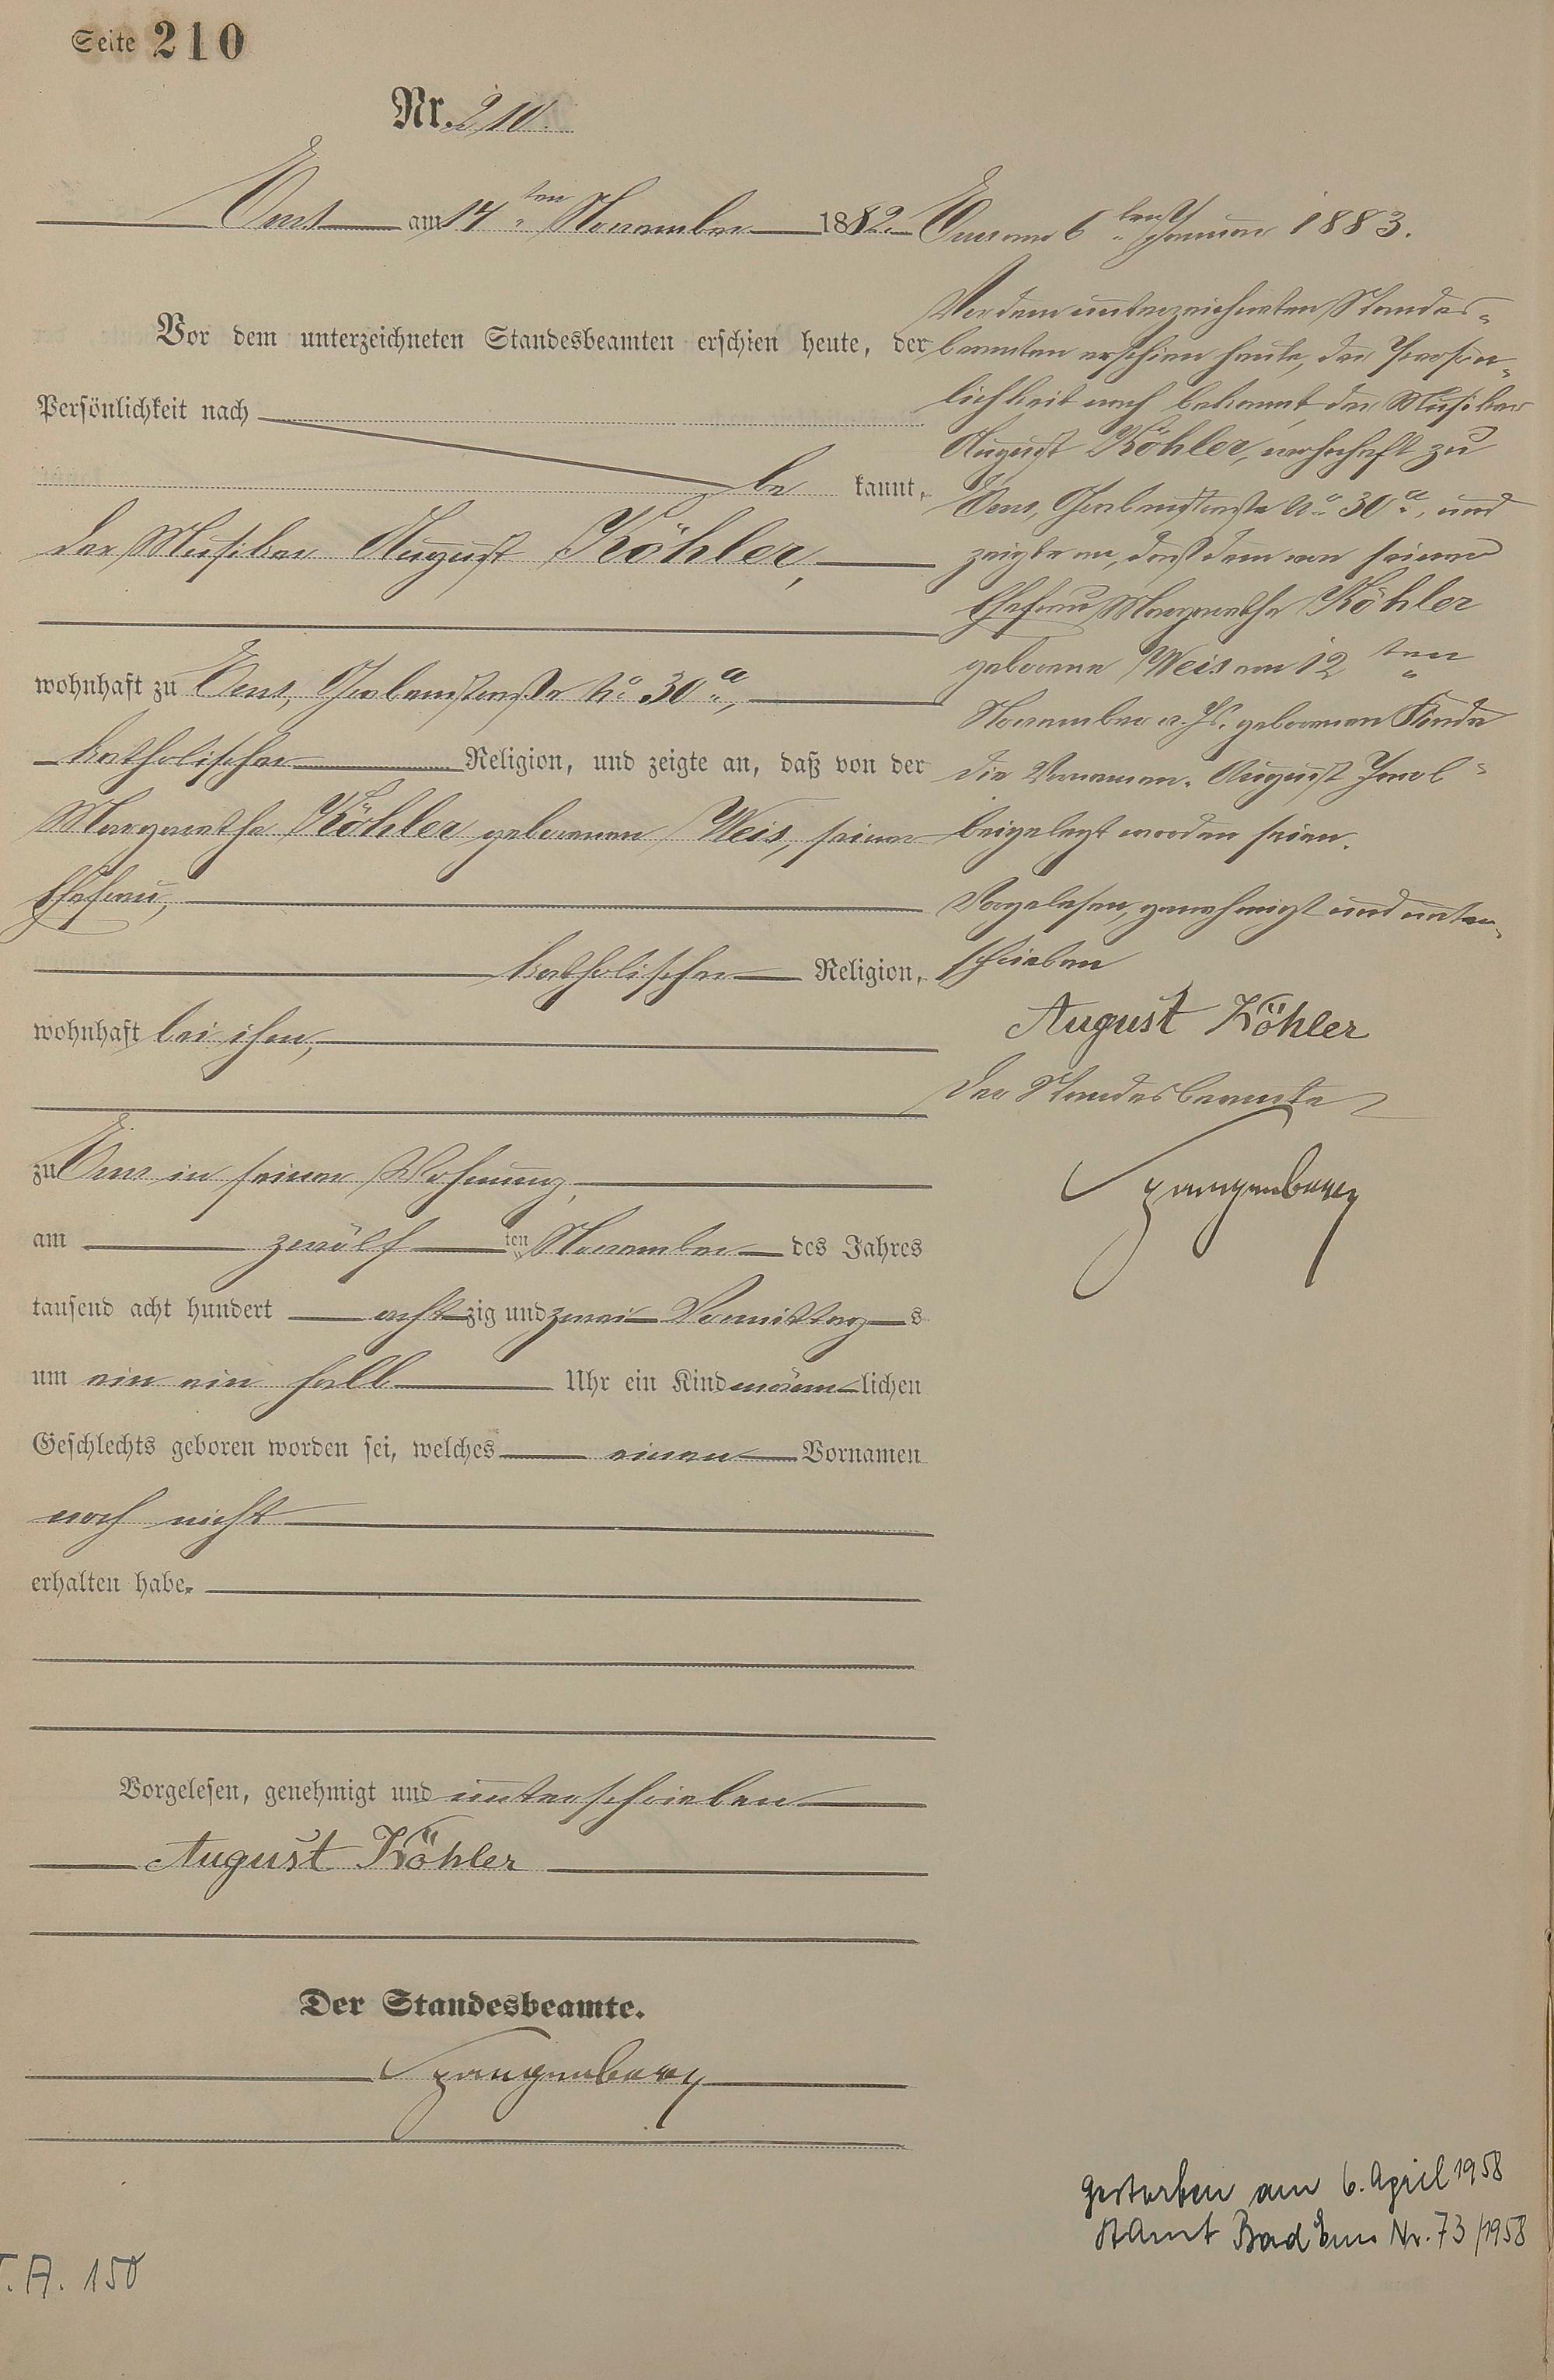 Seite 210
Nr. 210.
Ems am 14ten November 1882.
Vor dem unterzeichneten Standesbeamten erschien heute, der
Persönlichkeit nach
be kannt,
der Musiker August Köhler,
wohnhaft zu Ems, Grabenstraße No 30a,
katholischer Religion, und zeigte an, daß von der
Margarethe Köhler geborenen Weis, seiner
Ehefrau,
katholischer Religion,
wohnhaft bei ihm,
zu Ems in seiner Wohnung,
am zwölf ten November des Jahres
tausend acht hundert achtzig und zwei Vormittags
um ein ein halb Uhr ein Kind männlichen
Geschlechts geboren worden sei, welches einen Vornamen
noch nicht
erhalten habe.
Vorgelesen, genehmigt und unterschrieben
August Köhler
Der Standesbeamte.
Spangenberg
Ems am 6ten Januar 1883.
Vor dem unterzeichneten Standes-
beamten erschien heute, der Persön-
lichkeit nach bekannt, der Musiker
August Köhler, wohnhaft zu
Ems, Grabenstraße No 30a, und
zeigte an, daß dem von seiner
Ehefrau Margarethe Köhler
geborene Weis am 12ten
November v. Js. geborenen Kinde
die Vornamen: August Jacob
beigelegt worden seien.
Vorgelesen, genehmigt und unter-
schrieben
August Köhler
Der Standesbeamte
Spangenberg
Gestorben am 6. April 1958
StAmt Bad Ems Nr. 73/1958
T.A. 150